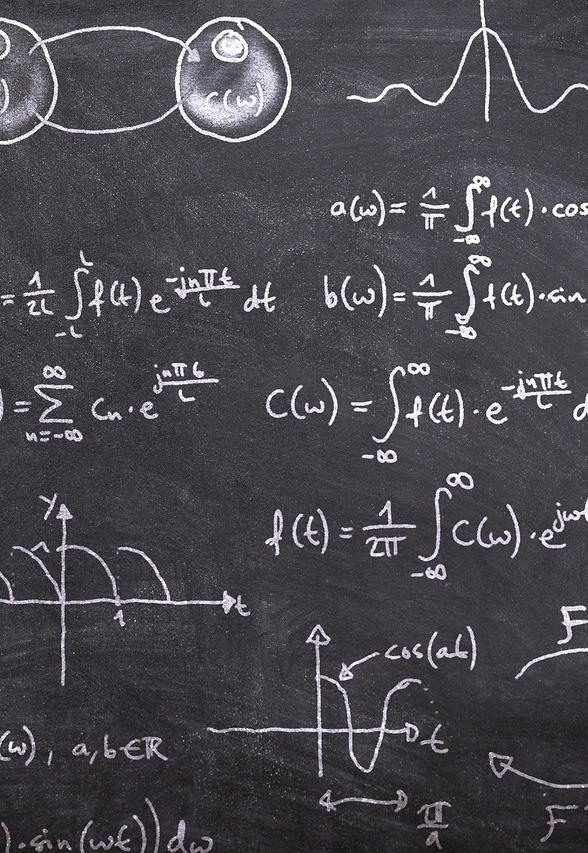 C(ω)
a(ω) = 1/π ∫_{-∞}^{∞} f(t)·cos
= 1/2L ∫_{-L}^{L} f(t) e^{-jnπt/L} dt
b(ω) = 1/π ∫_{-∞}^{∞} f(t)·sin
) = ∑_{n=-∞}^{∞} Cn·e^{jnπt/L}
C(ω) = ∫_{-∞}^{∞} f(t)·e^{-jnπt/L} d
f(t) = 1/2π ∫_{-∞}^{∞} C(ω)·e^{jωt
y
t
1
F
cos(at)
t
π/a
(ω), a,b∈ℝ
F
)·sin(ωt))dω